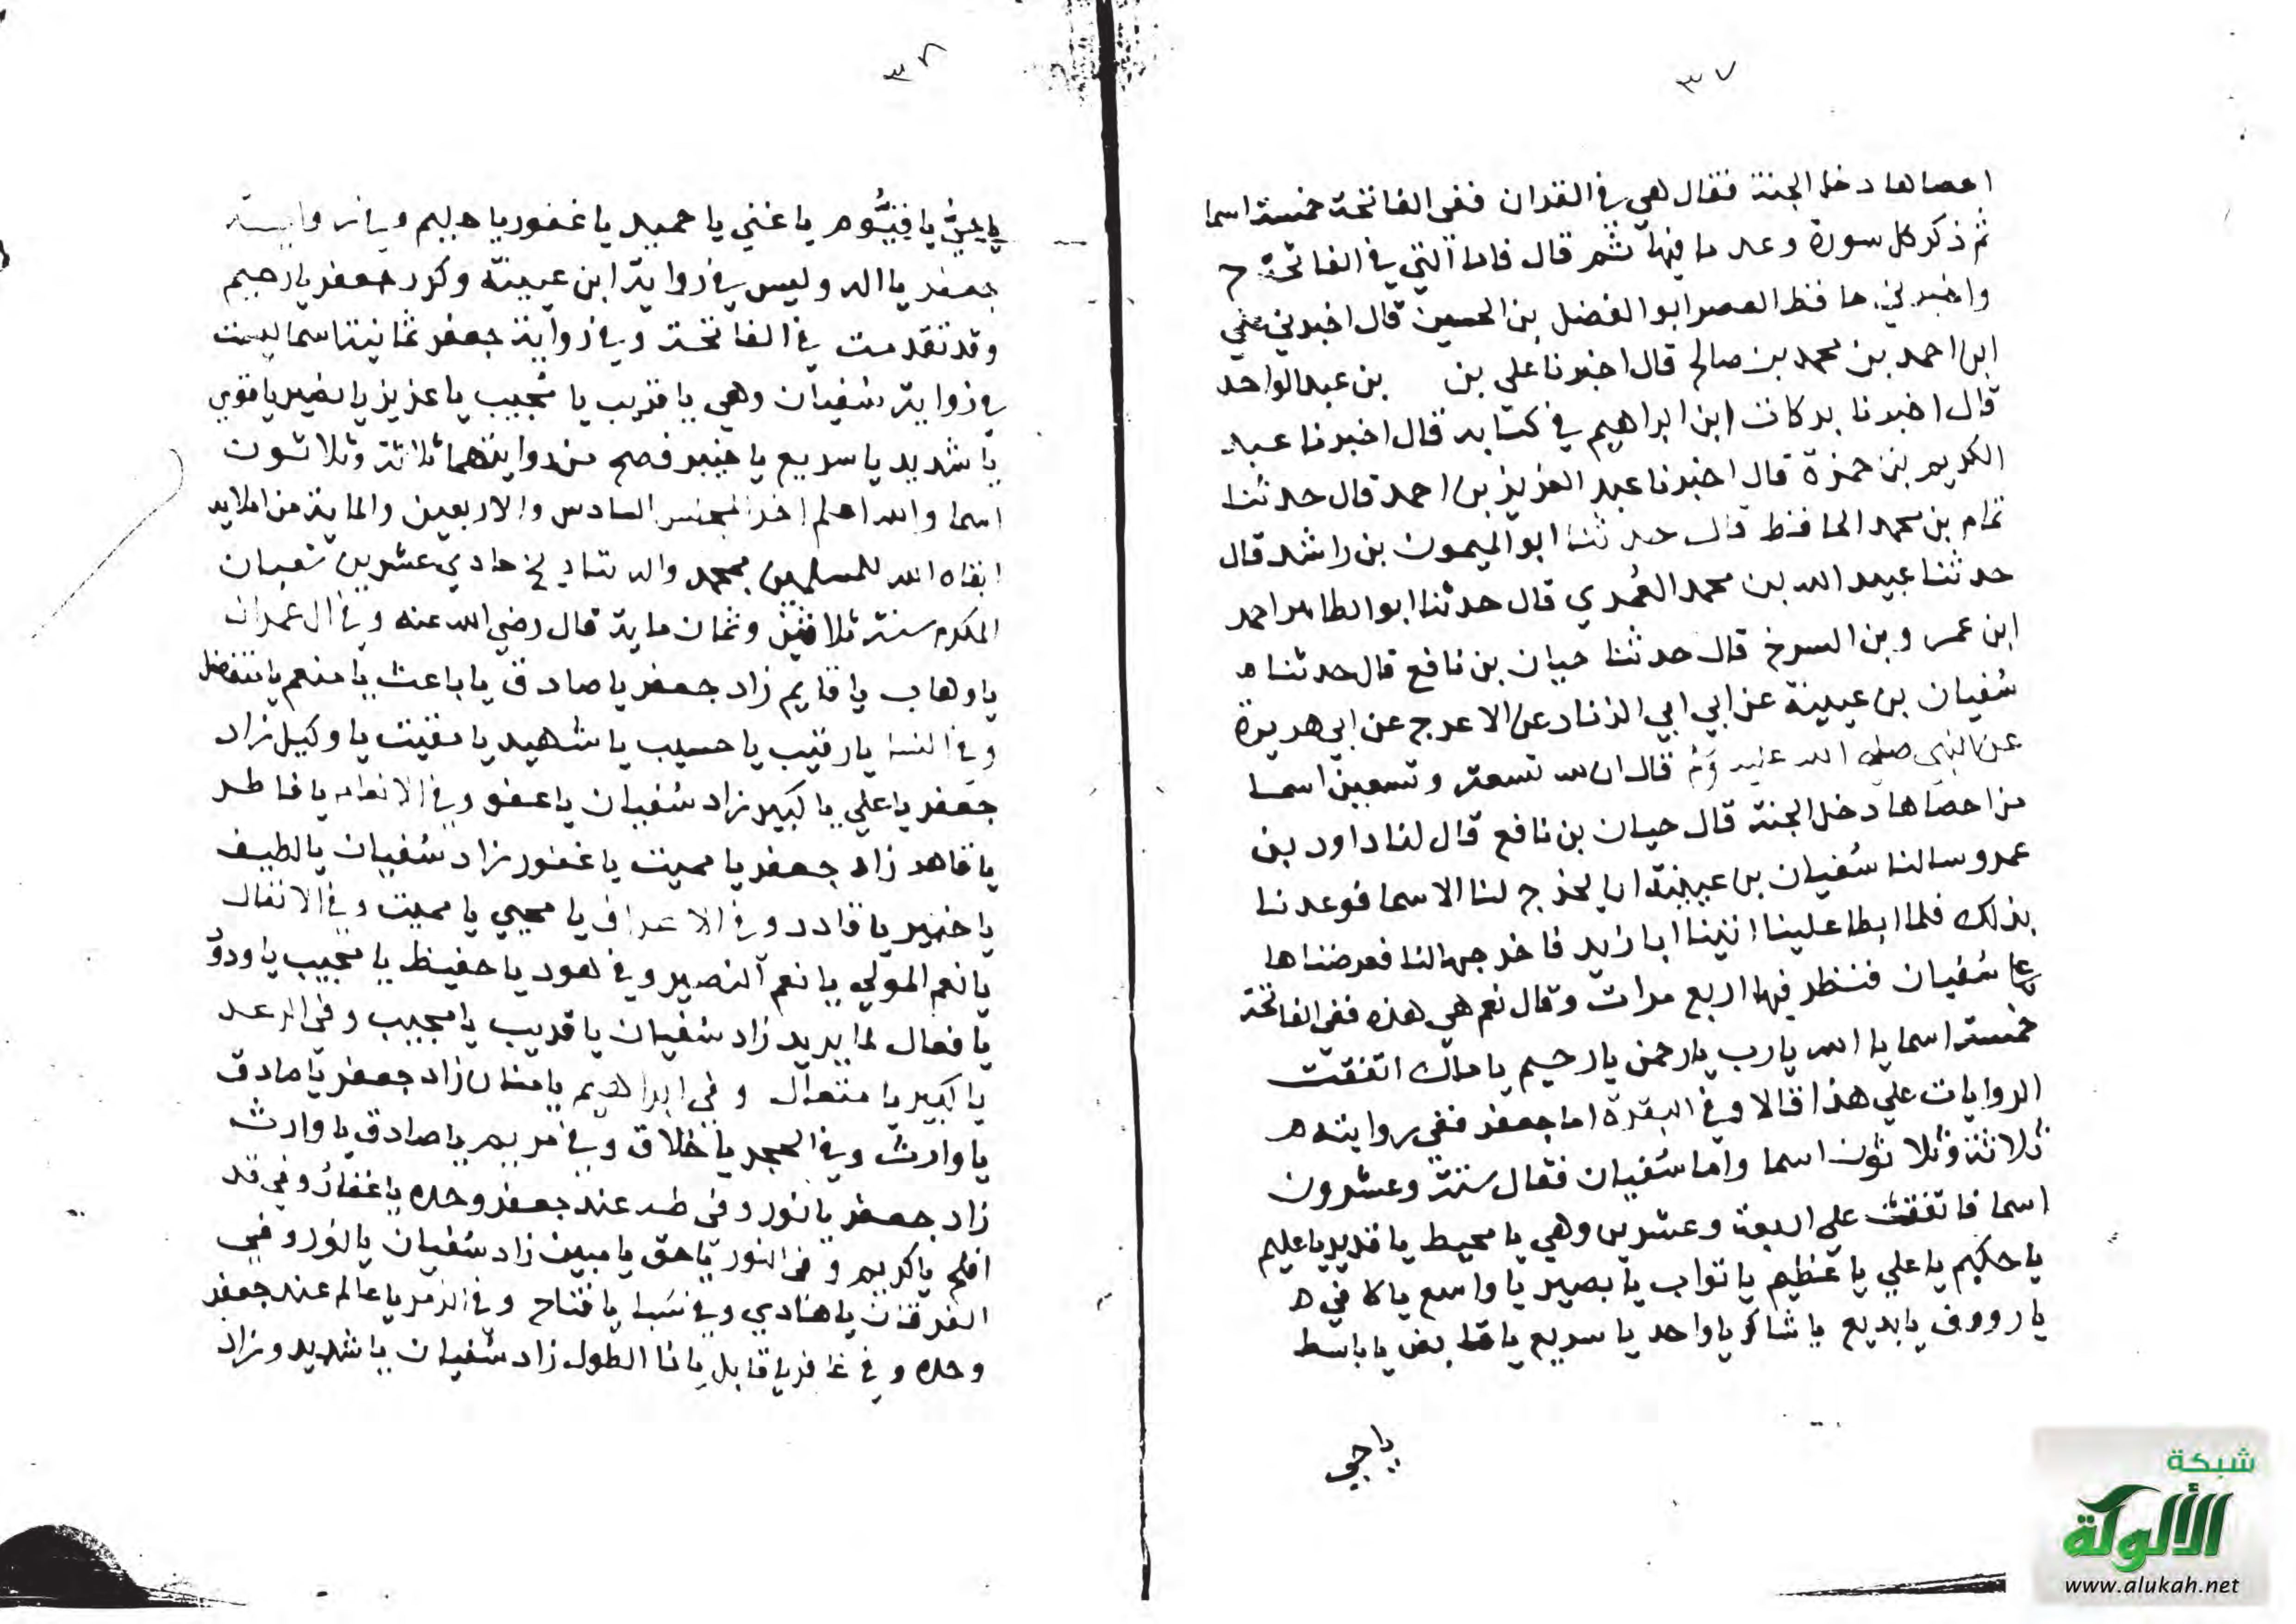 ٣٧
احصاها دخل الجنة فقال هي في القران ففي الفاتحة خمسة اسما
ثم ذكر كل سورة وعد ما فيها ثم قال فاما التي في الفاتحة ح
واخبرني حافظ العصر ابو الفضل بن الحسين قال اخبرني علي
ابن احمد بن محمد بن صالح قال اخبرنا علي بن بن عبد الواحد
قال اخبرنا بركات ابن ابراهيم في كتابه قال اخبرنا عبد
الكريم بن حمزة قال اخبرنا عبد العزيز بن احمد قال حدثنا
تمام بن محمد الحافظ قال حدثنا ابو الميمون بن راشد قال
حدثنا عبيد الله بن محمد العُمري قال حدثنا ابو الطاهر احمد
ابن عمر وبن السرح قال حدثنا حيان بن نافع قال حدثنا ه
سُفيان بن عيينة عن ابي ابي الزناد عن الاعرج عن ابي هريرة
عن النبي صلى الله عليه وم قال ان لله تسعة وتسعين اسما
من احصاها دخل الجنة قال حيان بن نافع قال لنا داود بن
عمرو سالنا سُفيان بن عيينة ان يخرج لنا الاسما فوعدنا
بذلك فلما ابطا علينا اتينا ابا زيد فاخرجها لنا فعرضناها
على سُفيان فنظر فيها اربع مرات وقال نعم هي هذه ففي الفاتحة
خمسة اسما يا الله يا رب يا رحمن يا رحيم يا مالك اتفقت
الروايات علي هذا قالا وفي البقرة اما جعفر ففي روايته ه
ثلاثة وثلاثون اسما واما سُفيان فقال ستة وعشرون
اسما فاتفقت على اربعة وعشرين وهي يا محيط يا قدير يا عليم
يا حكيم يا علي يا عظيم يا تواب يا بصير يا واسع يا كافي ه
يا رووف يا بديع يا شاكر يا واحد يا سريع يا قابض يا باسط
يا حي
٣٨
يا حيُّ يا قيُّوم يا غني يا حميد يا غفور يا حليم وفي رواية
جعفر يا اله وليس في رواية ابن عيينة وكرر جعفر يا رحيم
وقد تقدمت في الفاتحة وفي رواية جعفر ثمانية اسما ليست
في رواية سُفيان وهي يا قريب يا مُجيب يا عزيز يا نصير يا قوي
يا شديد يا سريع يا خبير فصح من روايتهما ثلاثة وثلاثون
اسما والله اعلم اخر المجلس السادس والاربعين والماية من املايه
ابقاه الله للمسلمين بمحمد واله بتاريخ حادي عشرين شعبان
المكرم سنة ثلاثين وثمان ماية قال رضي الله عنه وفي ال عمران
يا وهاب يا قايم زاد جعفر يا صادق يا باعث يا منعم يا متفضل
وفي النسا يا رقيب يا حسيب يا شهيد يا مقيت يا وكيل زاد
جعفر يا علي يا كبير زاد سُفيان يا عفو وفي الانعام يا فاطر
يا قاهر زاد جعفر يا مميت يا غفور زاد سُفيان يا لطيف
يا خبير يا قادر وفي الاعراف يا محيي يا مميت وفي الانفال
يا نعم المولي يا نعم النصير وفي هود يا حفيظ يا مجيب يا ودودُ
يا فعال لما يريد زاد سُفيان يا قريب يا مجيب وفي الرعد
يا كبير يا متعال وفي ابراهيم يا منان زاد جعفر يا صادق
يا وارث وفي الحجر يا خلاق وفي مريم يا صادق يا وارث
زاد جعفر يا نور وفي طه عند جعفر وحده يا غفار وفي قد
افلح يا كريم وفي النور يا حق يا مبين زاد سُفيان يا نور وفي
الفرقان يا هادي وفي سَبا يا فتاح وفي الزمر يا عالم عند جعفر
وحده وفي غافر يا قابل يا ذا الطول زاد سُفيان يا شديد وزاد
شبكة
الألوكة
www.alukah.net